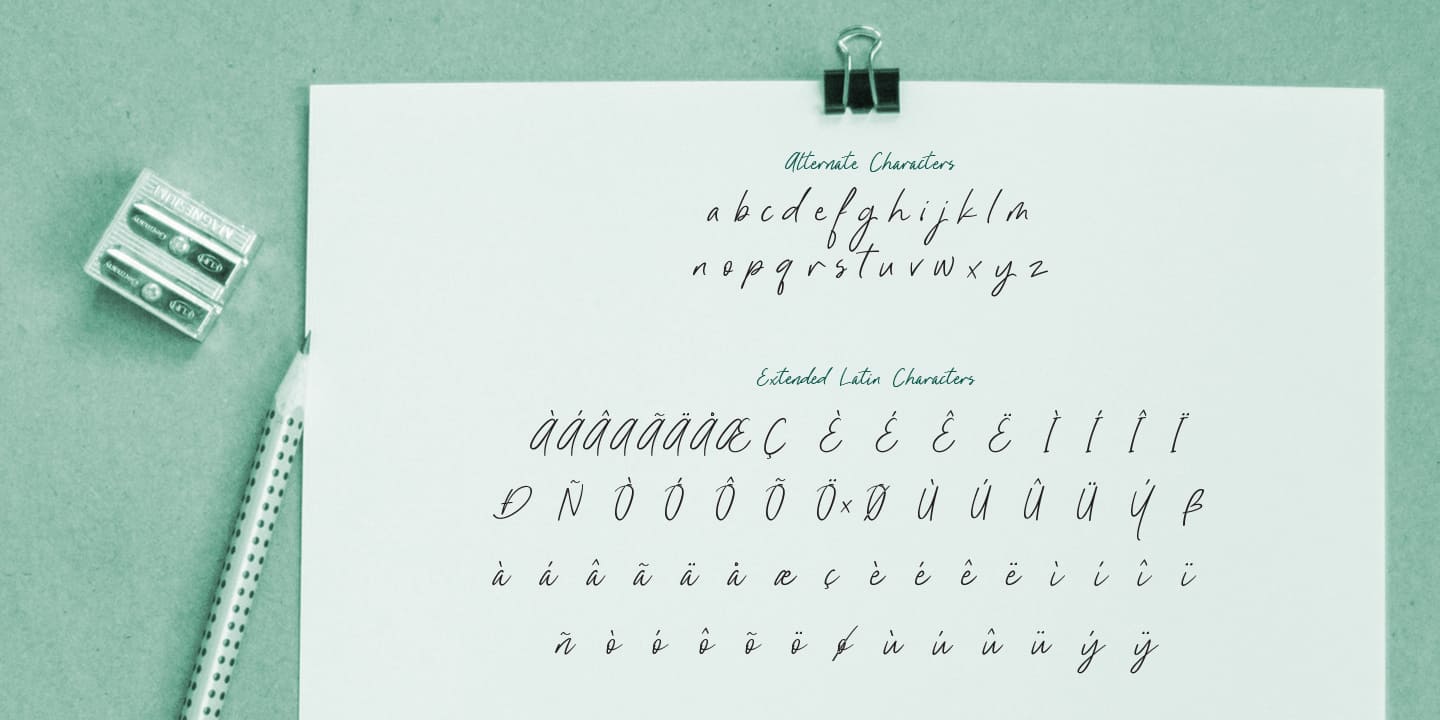 MAGNESIUM
Germany
Germany
Alternate Characters
a b c d e f g h i j k l m
n o p q r s t u v w x y z
Extended Latin Characters
À Á Â A Ã Ä Å Æ Ç È É Ê Ë Ì Í Î Ï
Ð Ñ Ò Ó Ô Õ Ö × Ø Ù Ú Û Ü Ý ß
à á â ã ä å æ ç è é ê ë ì í î ï
ñ ò ó ô õ ö ø ù ú û ü ý ÿ